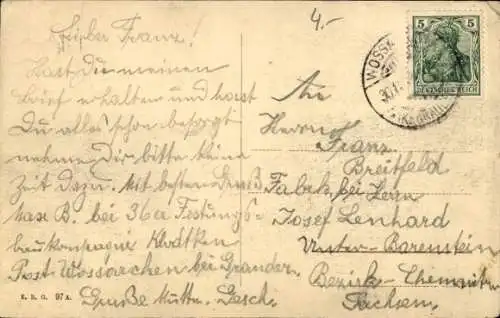 4.-
Lieber Franz!
Hast Du meinen
Brief erhalten und hast
Du alles schon besorgt
nehme Dir bitte keine
Zeit dazu. Mit besten Gruß
Max B. bei 36er Festungs-
baukompagnie Klodtken
Post Wossarken bei Graudenz.
Grüße Gesch.
E. B. G. 97 A.
WOSS
5 5
DEUTSCHES REICH
An
Herrn
Franz
Breitfeld
Fabrik bei Herrn
Josef Lenhard
Unter-Barenstein
Bezirk-Chemnitz
Sachsen.